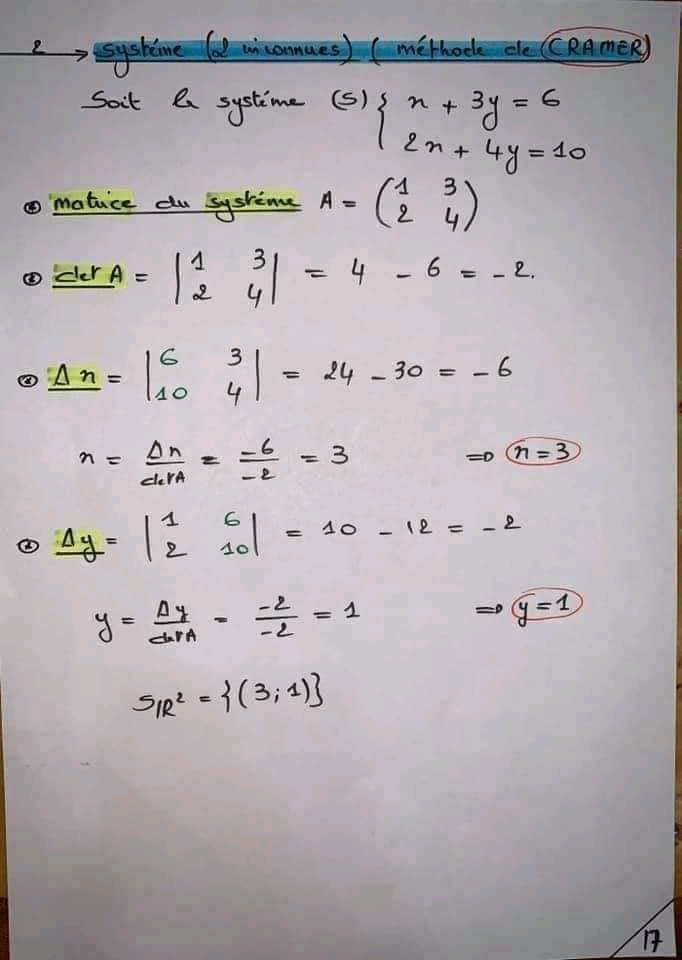 2 → système (2 inconnues) ( méthode de CRAMER)
Soit le système (S) { x + 3y = 6
2x + 4y = 10
matrice du système A = (1 3
2 4)
det A = |1 3
2 4| = 4 - 6 = - 2.
Δx = |6 3
10 4| = 24 - 30 = - 6
x = Δx/det A = -6/-2 = 3 ⇒ x = 3
Δy = |1 6
2 10| = 10 - 12 = - 2
y = Δy/det A = -2/-2 = 1 ⇒ y = 1
S_IR² = {(3; 1)}
17